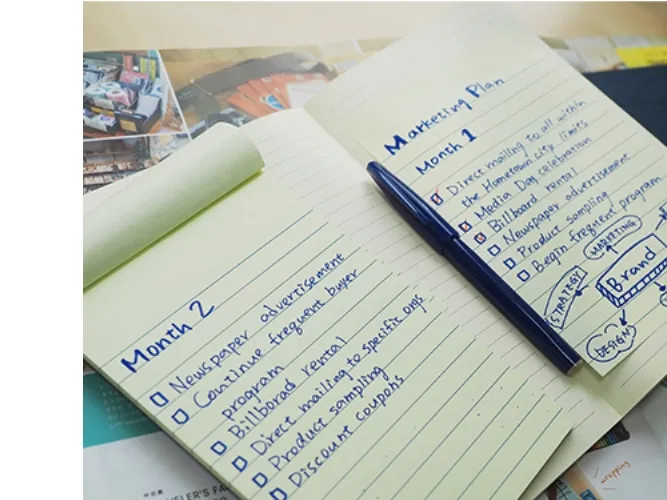 Marketing Plan
Month 1
Direct mailing to all within
the Hometown city limits
Media Day celebration
Billboard rental
Newspaper advertisement
Product sampling
Begin frequent program
MARKETING
Brand
STRATEGY
DESIGN
Month 2
Newspaper advertisement
Continue frequent buyer
program
Billborad rental
Direct mailing to specific orgs
Product sampling
Discount coupons